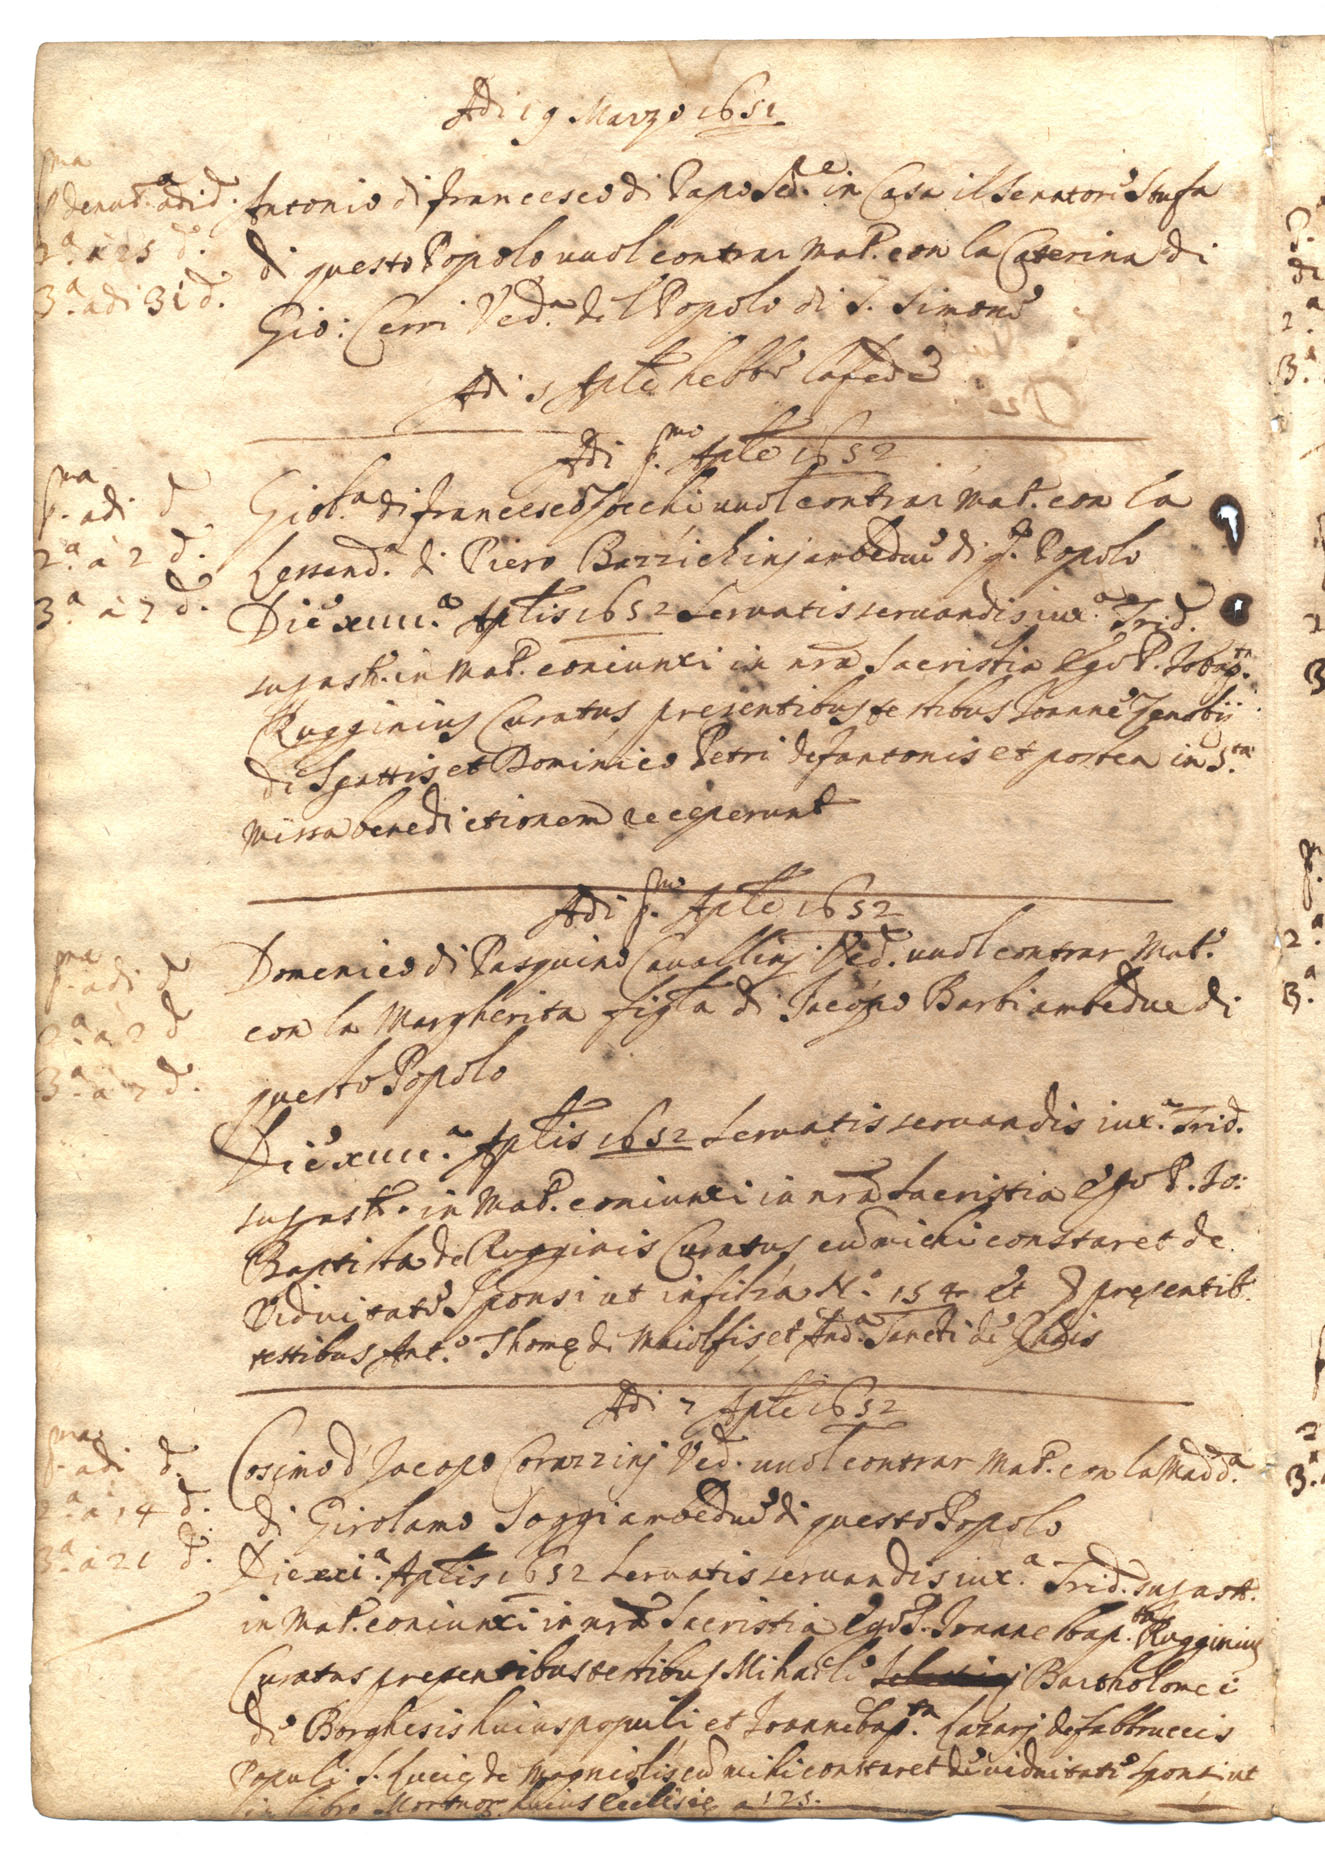 Adi 19 Marzo 1651
p.ma denut.a adi d.
2.a a 25 d.
3.a adi 31 d.
Antonio di francesco di Papo Ser.e in Casa il Senatore Stufa
di questo Popolo vuol contrar Mat. con la Caterina di
Gio: Cerri Ved.a del Popolo di S. Simone
Adi 5 Aple hebbe la fede
Adi p.mo Aple 1652
p.ma adi d
2.a a 2 d.
3.a a 7 d.
Giob.a di francesco Zocchi vuol contrar Mat. con la
Lessand.a di Piero Bazzichinj ambedue di q.o Popolo
Die xiiii.a Aplis 1652 Servatis servandis iux.a Trid.
in Mat. coniunxi in nra Sacristia Ego P. Iobap.ta
Rugginius Curatus presentibus testibus Ioanne Zenobij
de Sgattis et Dominico Petri de fantonis et postea in S.ta
Missa benedictionem receperunt
Adi p.mo Aple 1652
p.ma adi d
2.a a 2 d
3.a a 7 d.
Domenico di Pasquino Cavallinj Ved. vuol contrar Mat.
con la Margherita figla di Jacopo Barbi ambedue di
questo Popolo
Die xiiii.a Aplis 1652 Servatis servandis iux.a Trid.
in Mat. coniunxi in nra Sacristia Ego P. Io:
Baptista de Rugginis Curatus cum michi constaret de
Viduitate Sponsi ut in filza N.o 154 et presentib.
testibus Ant.o Thome de Maiolfis et And.a Sancti de
Adi 7 Aple 1652
p.ma adi d.
2.a a 14 d.
3.a a 21 d.
Cosimo d' Jacopo Corazzinj Ved. vuol contrar Mat. con la Madd.a
di Girolamo Soggi ambedue di questo Popolo
Die xxi.a Aplis 1652 Servatis servandis iux.a Trid.
in Mat. coniunxi in nra Sacristia Ego P. Ioanne bap.ta Rugginius
Curatus presentibus testibus Mihaele Bartholomei
de Borghesis huius populi et Ioannebap.ta Lazarj de fabbruccis
Populi S. Lucię de Magniolis cum mihi constaret de viduitate Sponsi ut
in libro Mortuor. huius Ecclesię a 125.